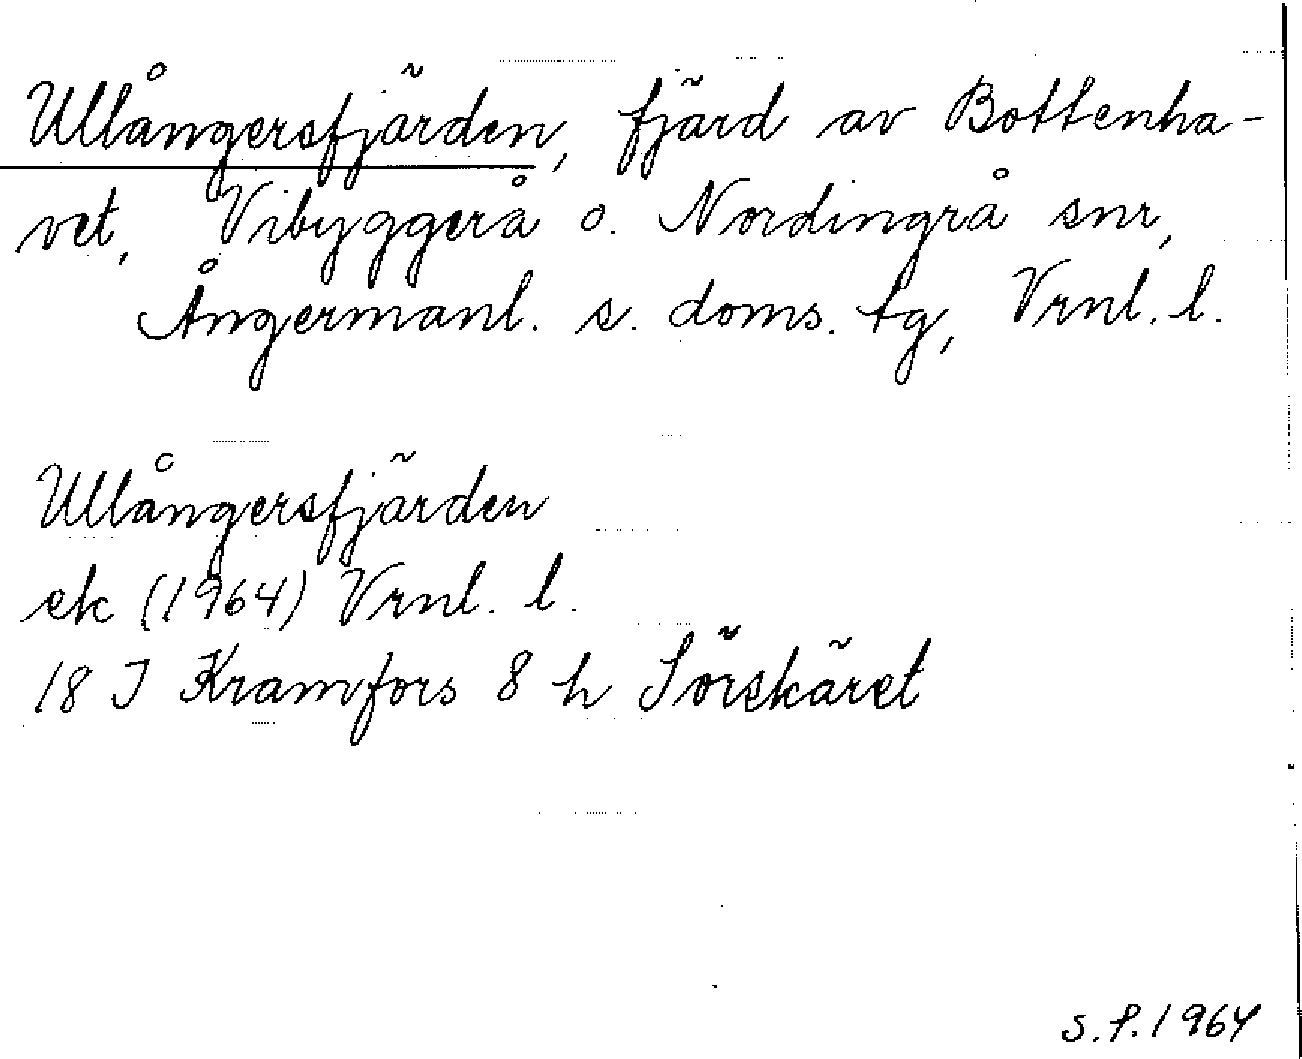 Ullångersfjärden, fjärd av Bottenha-
vet, Vibyggerå o. Nordingrå snr,
Ångermanl. s. doms. tg, Vrnl. l.
Ullångersfjärden
ek (1964) Vrnl. l.
18 J Kramfors 8 h Sörskäret
S.P. 1964